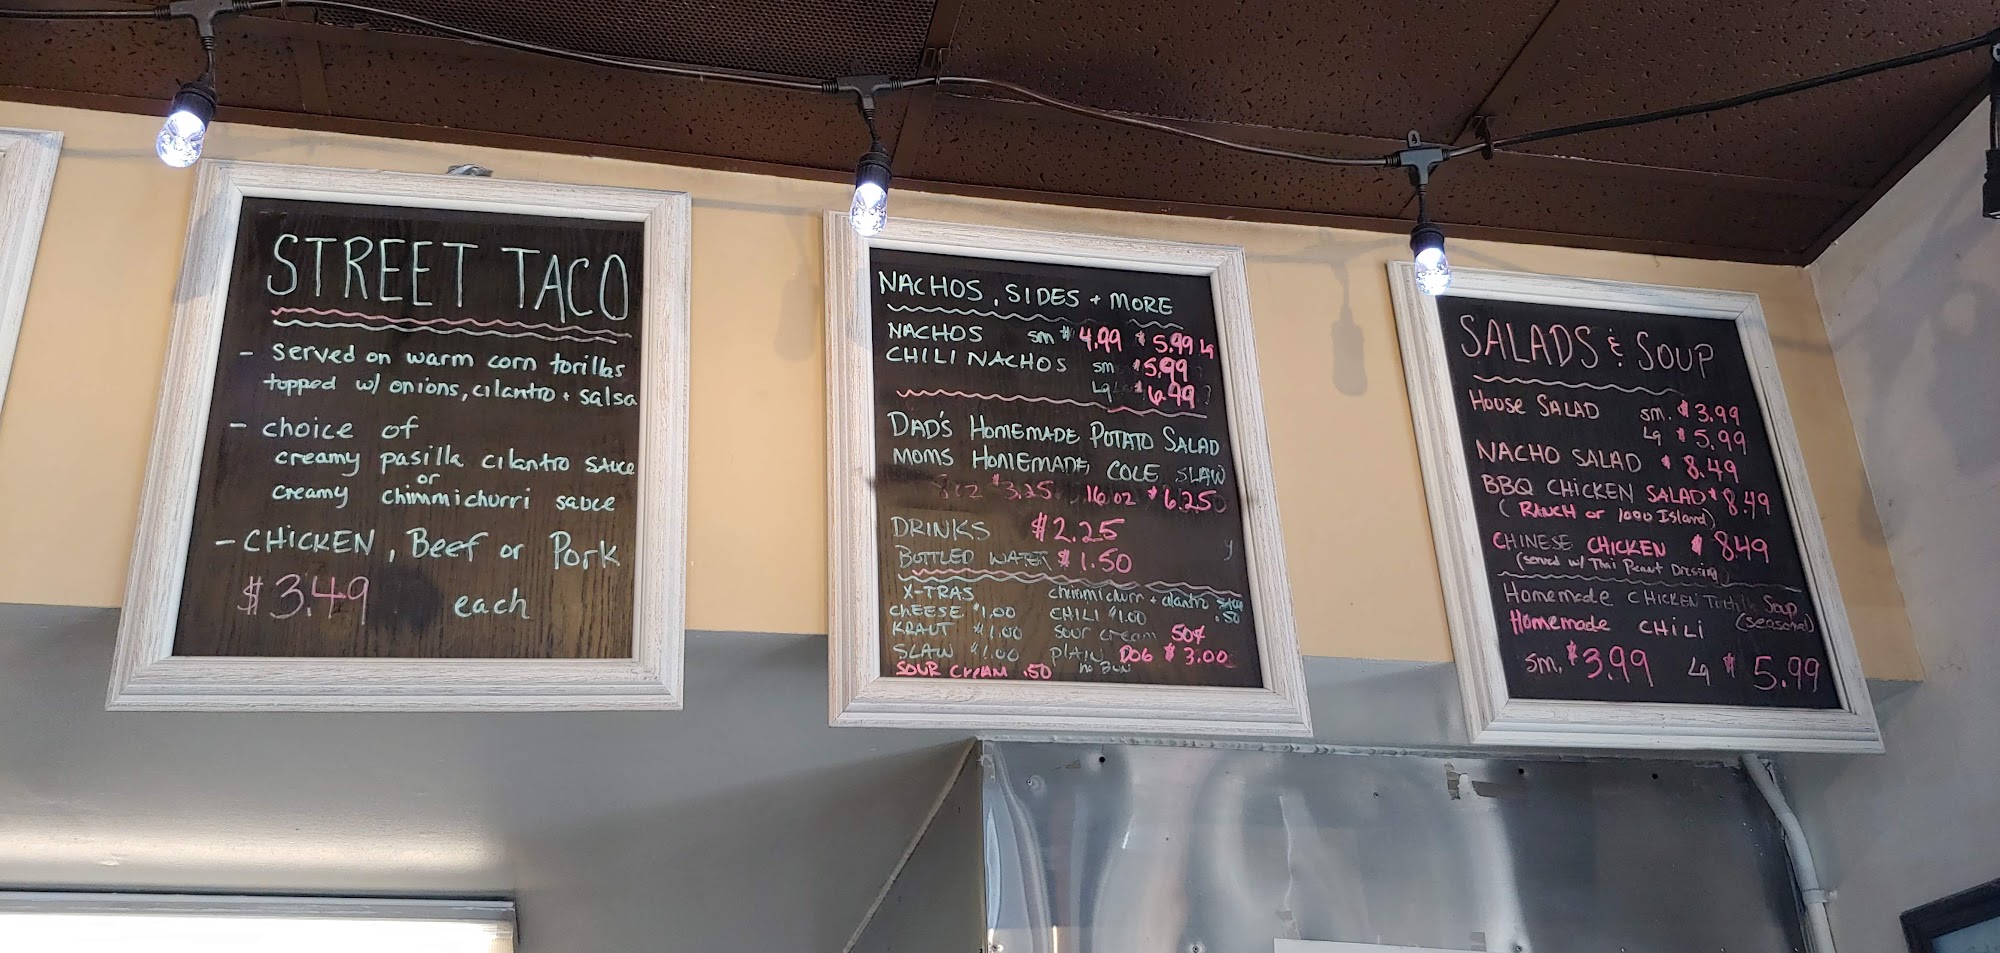 STREET TACO
- served on warm corn torillas
topped w/ onions, cilantro + salsa
- choice of
creamy pasilla cilantro sauce
or
creamy chimmichurri sauce
- CHICKEN, Beef or Pork
$3.49 each
NACHOS, SIDES + MORE
NACHOS sm $4.99 $5.99 Lg
CHILI NACHOS sm $5.99
Lg $6.99
DAD'S HOMEMADE POTATO SALAD
MOMS HOMEMADE COLE SLAW
8oz $3.25 16oz $6.25
DRINKS $2.25
BOTTLED WATER $1.50
X-TRAS chimmichurri + cilantro sauce
CHEESE $1.00 CHILI $1.00 .50
KRAUT $1.00 Sour cream 50¢
SLAW $1.00 PLAIN DOG $3.00
SOUR CREAM .50 no BUN
SALADS & SOUP
HOUSE SALAD sm. $3.99
Lg $5.99
NACHO SALAD $8.49
BBQ CHICKEN SALAD $8.49
(RANCH or 1000 Island)
CHINESE CHICKEN $8.49
(served w/ Thai Peanut Dressing)
Homemade CHICKEN Soup
Homemade CHILI (seasonal)
sm. $3.99 Lg $5.99